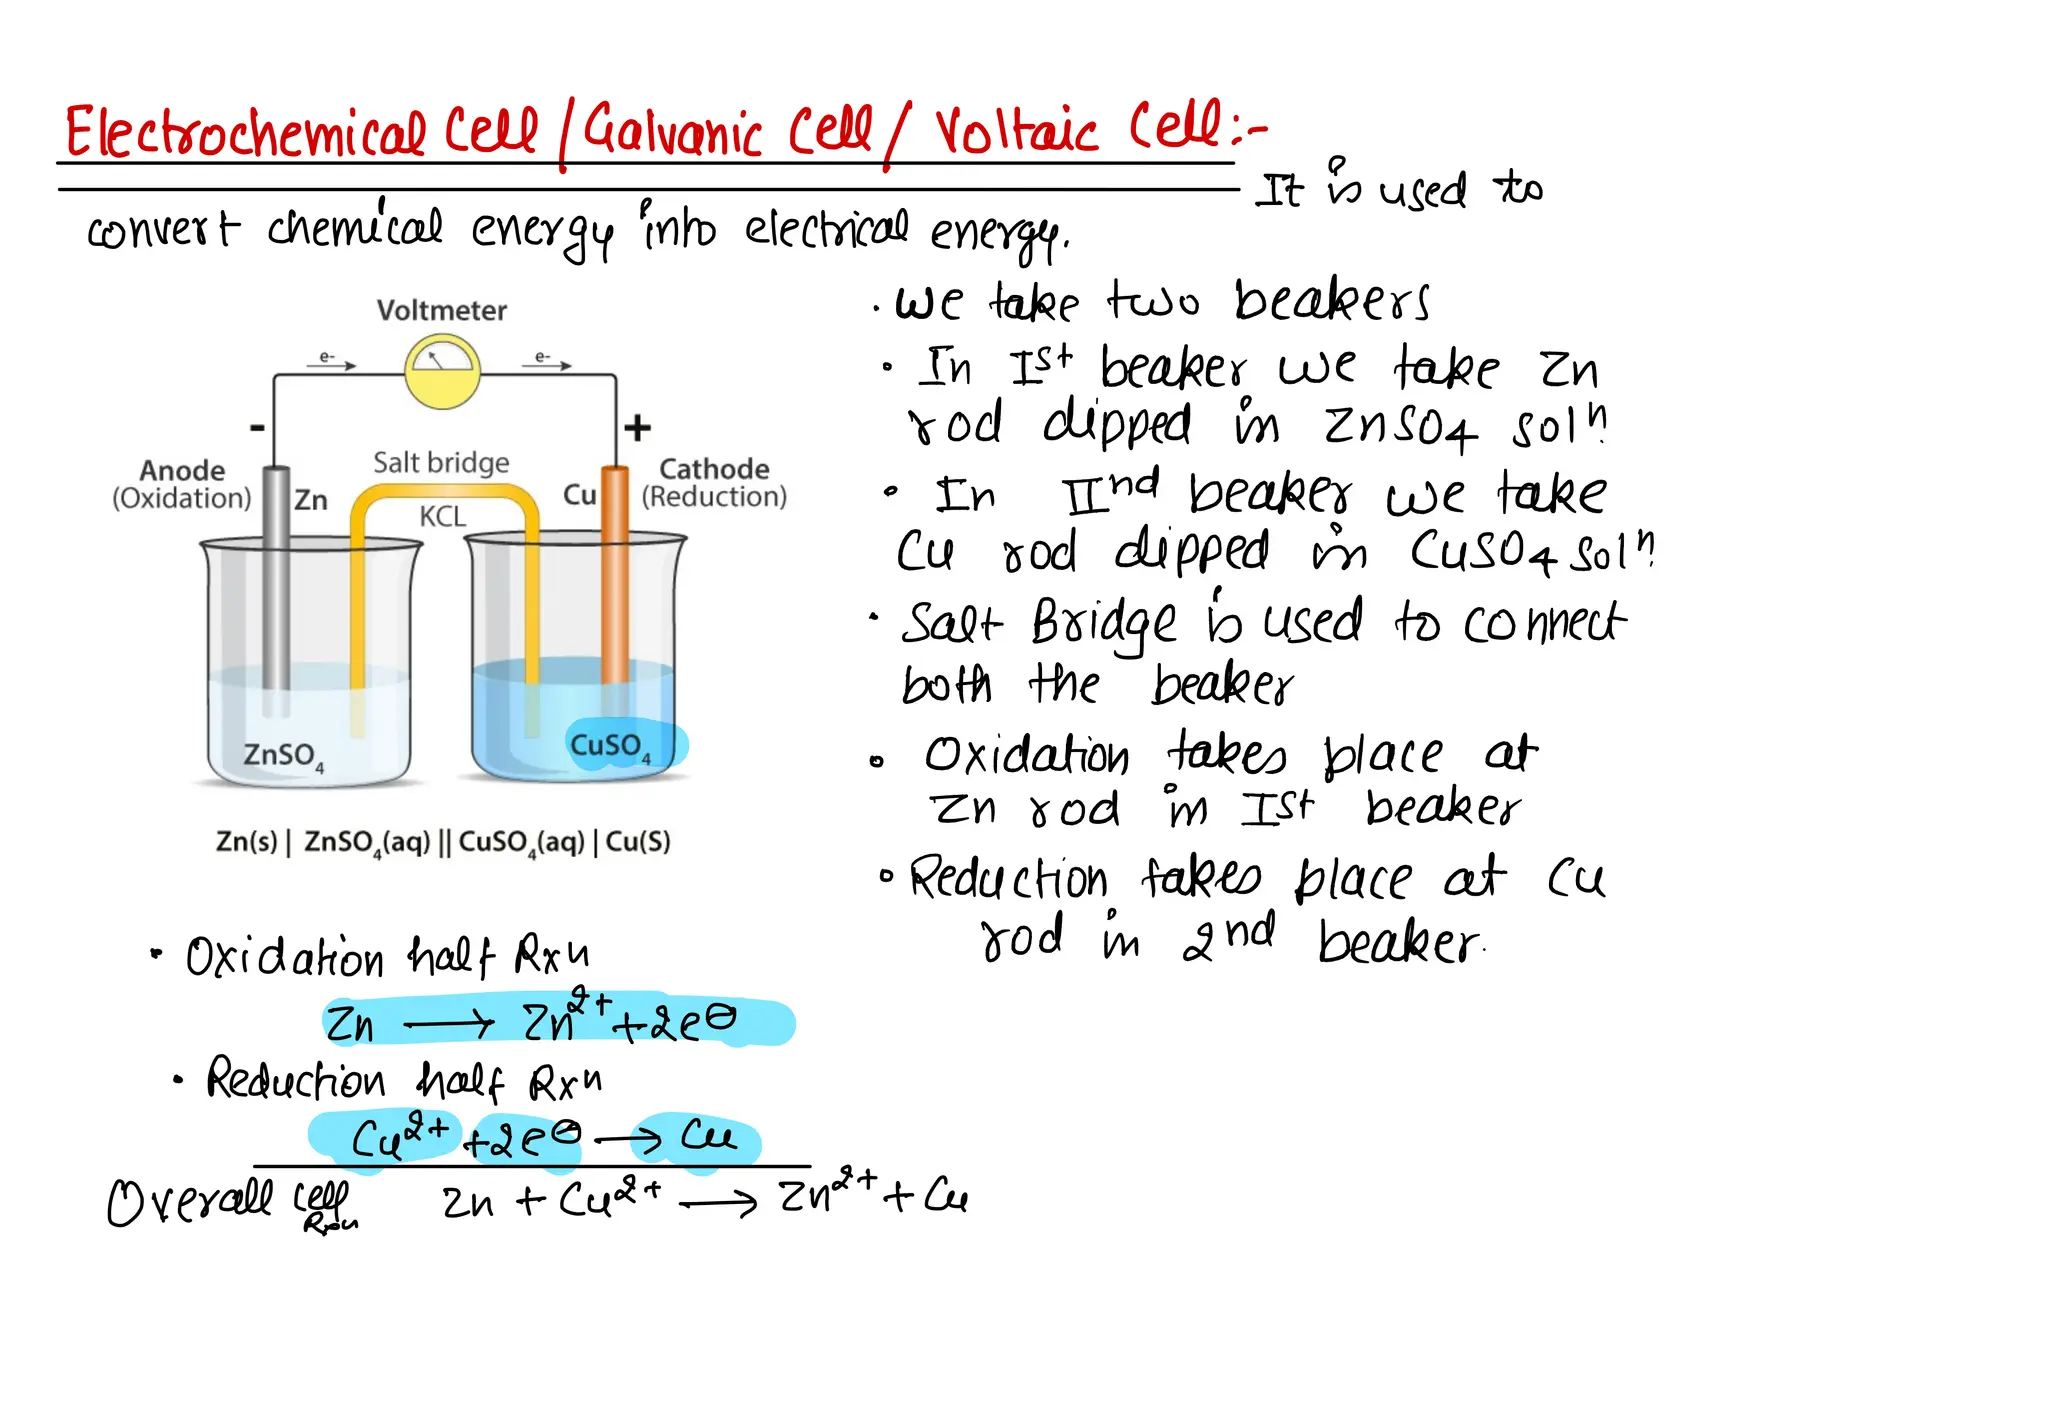 Electrochemical Cell / Galvanic Cell / Voltaic Cell:-
It is used to
convert chemical energy into electrical energy.
Voltmeter
e- e-
- +
Anode
(Oxidation)
Zn
Salt bridge
KCL
Cu
Cathode
(Reduction)
ZnSO₄
CuSO₄
Zn(s) | ZnSO₄(aq) || CuSO₄(aq) | Cu(S)
• We take two beakers
• In Ist beaker we take Zn
rod dipped in ZnSO4 solⁿ.
• In IInd beaker we take
Cu rod dipped in CuSO4 solⁿ.
• Salt Bridge is used to connect
both the beaker
• Oxidation takes place at
Zn rod in Ist beaker
• Reduction takes place at Cu
rod in 2nd beaker.
• Oxidation half Rxn
Zn ⟶ Zn²⁺ + 2e⊖
• Reduction half Rxn
Cu²⁺ + 2e⊖ ⟶ Cu
Overall cell Rxn Zn + Cu²⁺ ⟶ Zn²⁺ + Cu